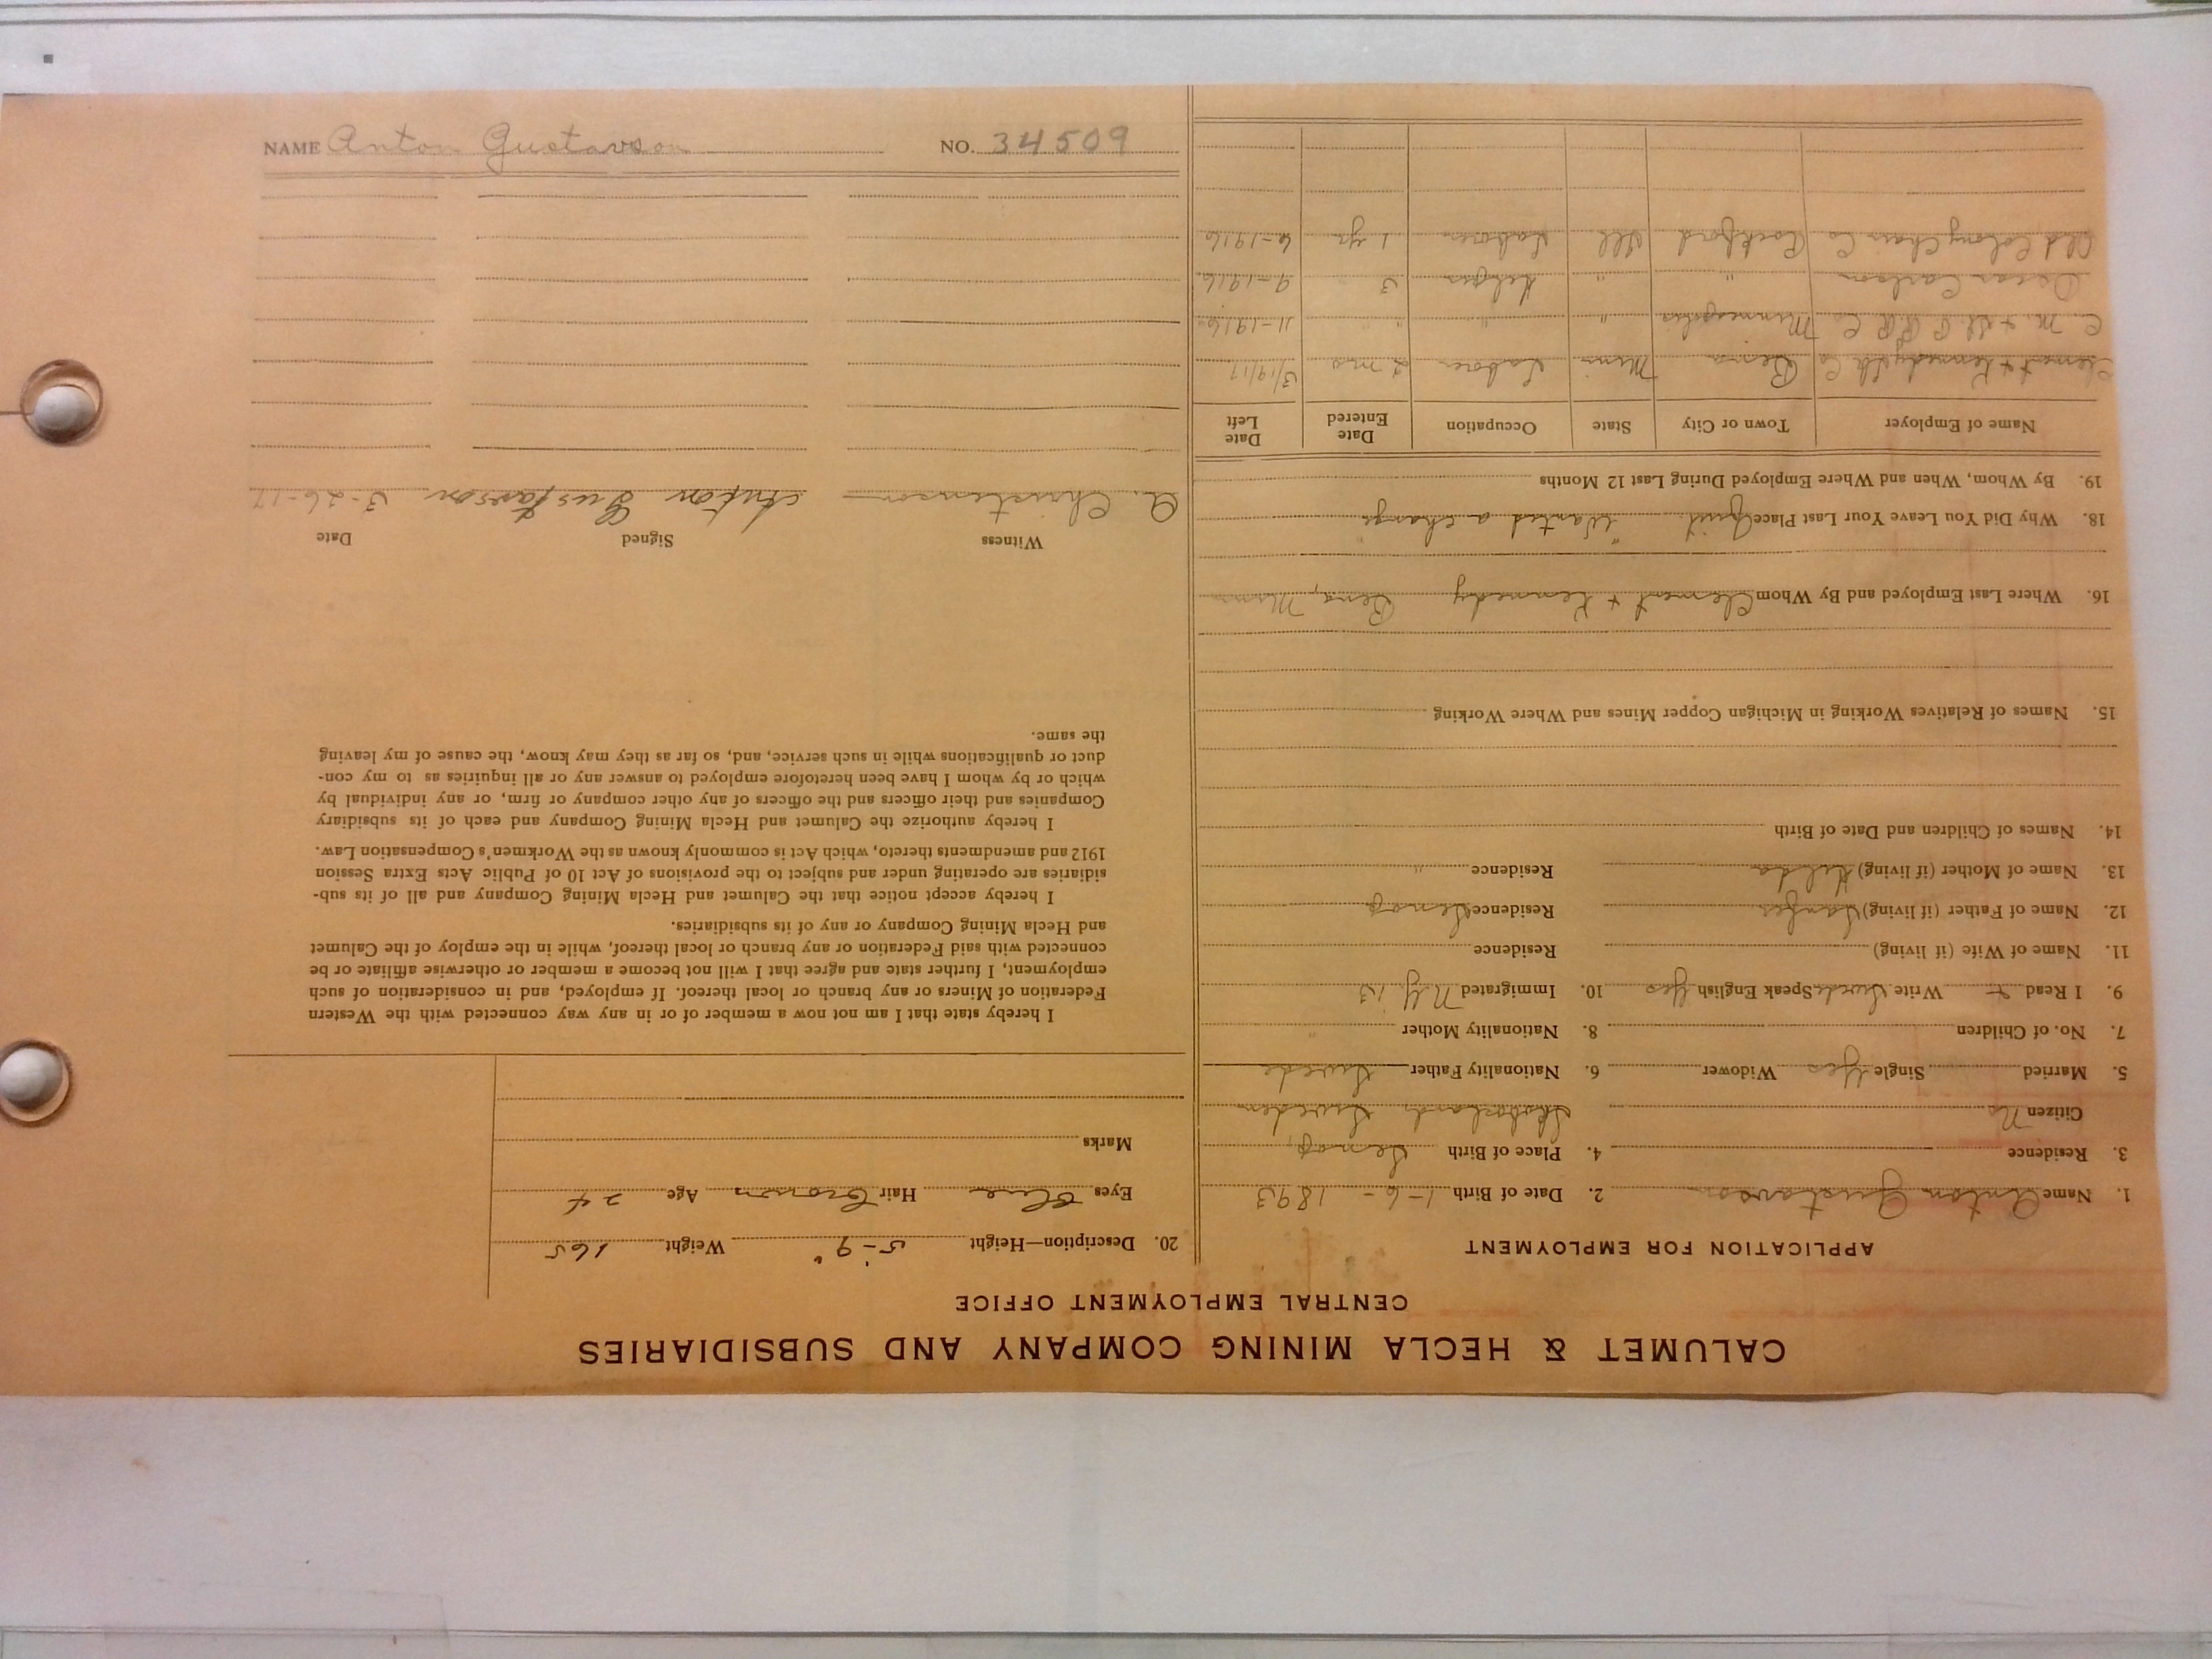 CALUMET & HECLA MINING COMPANY AND SUBSIDIARIES
CENTRAL EMPLOYMENT OFFICE
APPLICATION FOR EMPLOYMENT
1. Name Anton Gustavson 2. Date of Birth 1-6-1893
3. Residence 4. Place of Birth
Citizen No Sweden
5. Married Single Yes Widower 6. Nationality Father Swede
7. No. of Children 8. Nationality Mother "
9. I Read + Write Swede Speak English Yes 10. Immigrated N.Y. 13
11. Name of Wife (if living) Residence
12. Name of Father (if living) Residence
13. Name of Mother (if living) Hilda Residence "
14. Names of Children and Date of Birth
15. Names of Relatives Working in Michigan Copper Mines and Where Working
16. Where Last Employed and By Whom Clement + Kennedy Bena, Minn
18. Why Did You Leave Your Last Place Quit "Wanted a change"
19. By Whom, When and Where Employed During Last 12 Months
Name of Employer Town or City State Occupation Date Entered Date Left
Clement + Kennedy Co Bena Minn Laborer 2 mos 3/19/17
C. M. + St. P. R.R. Co Minneapolis " " " " 11-1916
Oscar Carlson " " Helper 3 " 9-1916
Old Colony Chair Co Rockford Ill Laborer 1 yr 6-1916
20. Description—Height 5'-9" Weight 165
Eyes Blue Hair Brown Age 24
Marks
I hereby state that I am not now a member of or in any way connected with the Western
Federation of Miners or any branch or local thereof. If employed, and in consideration of such
employment, I further state and agree that I will not become a member or otherwise affiliate or be
connected with said Federation or any branch or local thereof, while in the employ of the Calumet
and Hecla Mining Company or any of its subsidiaries.
I hereby accept notice that the Calumet and Hecla Mining Company and all of its sub-
sidiaries are operating under and subject to the provisions of Act 10 of Public Acts Extra Session
1912 and amendments thereto, which Act is commonly known as the Workmen's Compensation Law.
I hereby authorize the Calumet and Hecla Mining Company and each of its subsidiary
Companies and their officers and the officers of any other company or firm, or any individual by
which or by whom I have been heretofore employed to answer any or all inquiries as to my con-
duct or qualifications while in such service, and, so far as they may know, the cause of my leaving
the same.
Witness Signed Date
A. Christenson Anton Gustavson 3-26-17
NAME Anton Gustavson NO. 34509